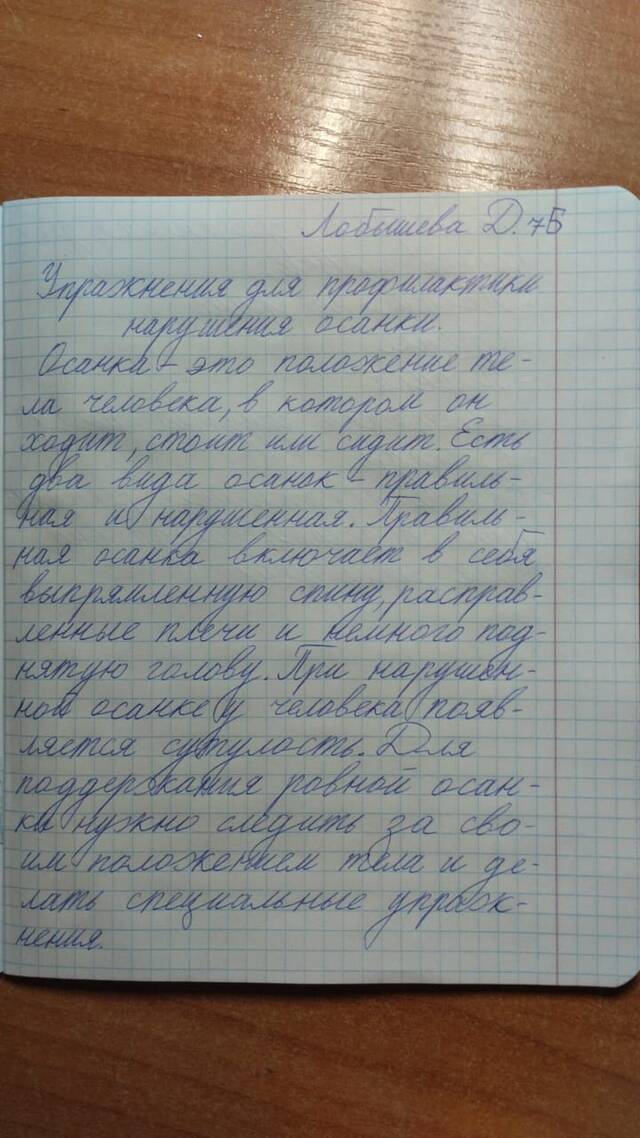 Лобышева Д. 7Б
Упражнения для профилактики
нарушения осанки.
Осанка - это положение те-
ла человека, в котором он
ходит, стоит или сидит. Есть
два вида осанок - правиль-
ная и нарушенная. Правиль-
ная осанка включает в себя
выпрямленную спину, расправ-
ленные плечи и немного под-
нятую голову. При нарушен-
ной осанке у человека появ-
ляется сутулость. Для
поддержания ровной осан-
ки нужно следить за сво-
им положением тела и де-
лать специальные упраж-
нения.